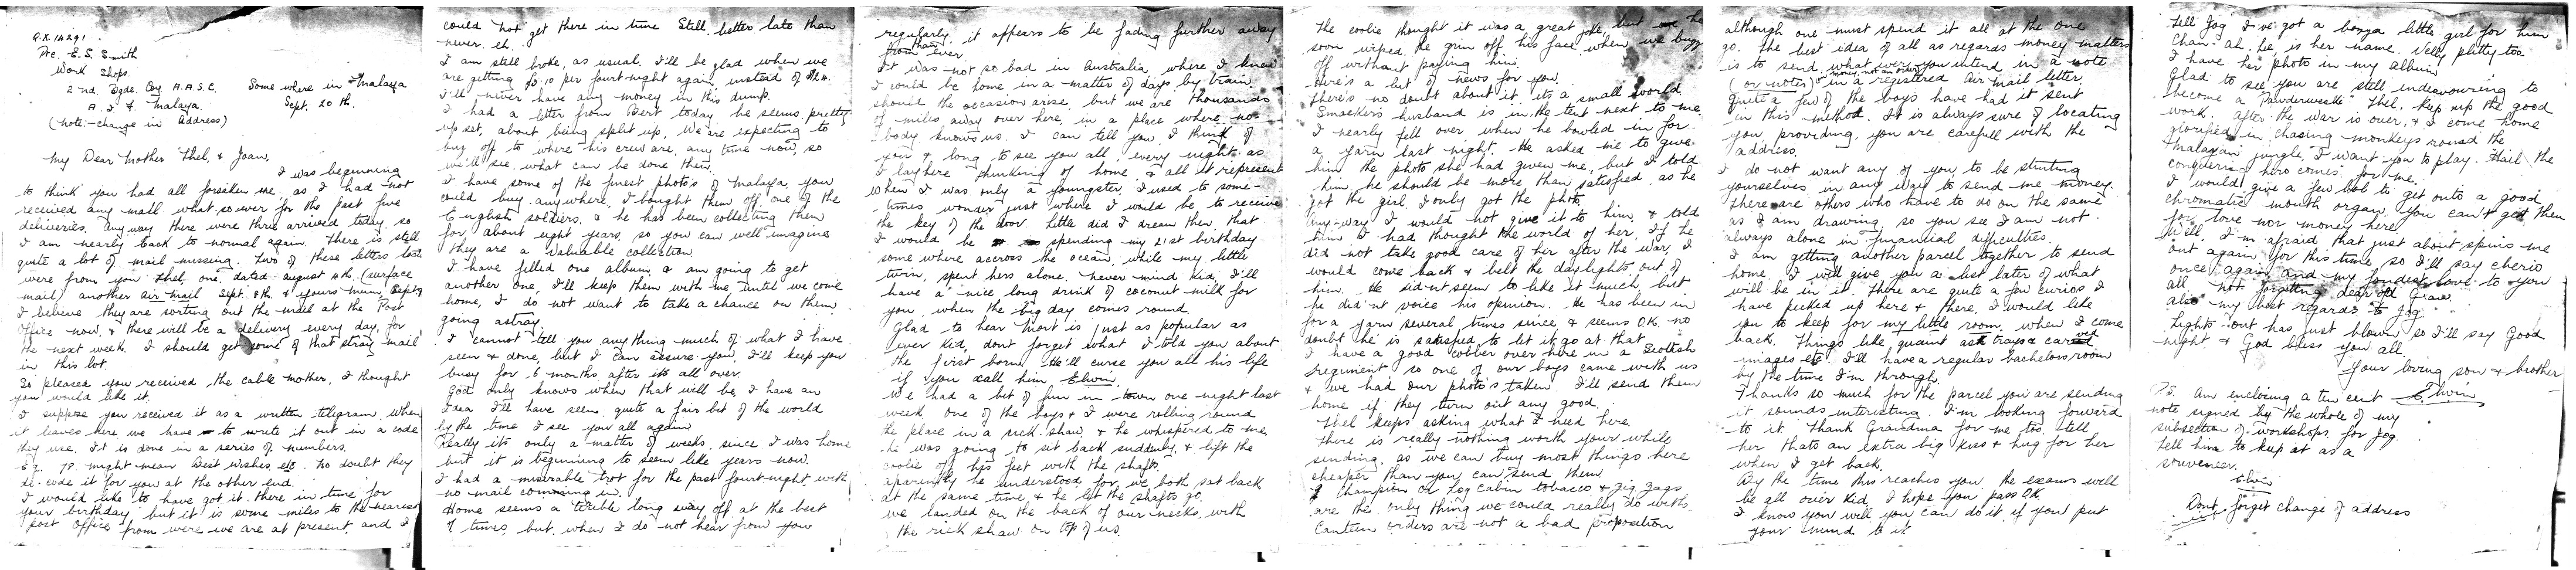 Q.X. 14291.
Pte. E.S. Smith
Work Shops.
2nd. Bgde. Coy A.A.S.C. Some where in Malaya
A.I.F. Malaya. Sept. 20 th.
(Note:- change in Address)
My Dear Mother Thel, & Joan,
I was beginning
to think you had all forsaken me, as I had not
received any mail what so ever for the past five
deliveries. Anyway there were three arrived today, so
I am nearly back to normal again. There is still
quite a lot of mail missing. Two of these letters
were from you Thel, one dated August 4th, (surface
mail) another air-mail Sept. 8th. & yours Mum, Sept 9
I believe they are sorting out the mail at the Post
Office now, & there will be a delivery every day, for
the next week. I should get some of that stray mail
in this lot.
So pleased you received the cable Mother, I thought
you would like it.
I suppose you received it as a written telegram, when
it leaves here we have to write it out in a code
they use. It is done in a series of numbers.
E.g. 78 might mean Best Wishes, etc. No doubt they
de-code it for you at the other end.
I would like to have got it there in time for
your birthday but it is some miles to the nearest
post office from were we are at present, and I
could not get there in time Still, better late than
never eh.
I am still broke, as usual. I'll be glad when we
are getting per fourt-night again, instead of
I'll never have any money in this dump.
I had a letter from Bert today, he seems pretty
up set, about being split up. We are expecting to
buzz off to where his crew are, any time now, so
we'll see what can be done then.
I have some of the finest photo's of Malaya you
could buy anywhere, I bought them off one of the
English soldiers, & he has been collecting them
for about eight years, so you can well imagine
they are a valuable collection.
I have filled one album, & am going to get
another one, I'll keep them with me until we come
home, I do not want to take a chance on them
going astray.
I cannot tell you anything much of what I have
seen & done, but I can assure you, I'll keep you
busy for 6 months after its all over.
God only knows when that will be, I have an
idea I'll have seen quite a fair bit of the world
by the time I see you all again
Really its only a matter of weeks, since I was home
but it is beginning to seem like years now.
I had a miserable trot for the past fourt-night, with
no mail comming in.
Home seems a terible long way off at the best
of times, but when I do not hear from you
regularly, it appears to be fading further away
than ever.
It was not so bad in Australia where I knew
I could be home in a matter of days, by train
should the occasion arise, but we are thousands
of miles away over here, in a place where no-
body knows us. I can tell you I think of
you & long to see you all, every night, as
I lay here thinking of home, & all it represent
When I was only a youngster, I used to some-
times wonder just where I would be to receive
the key of the door. Little did I dream then, that
I would be spending my 21st birthday
some where accross the ocean, while my little
twin, spent hers alone. Never mind Kid, I'll
have a nice long drink of coconut milk for
you, when the big day comes round.
Glad to hear Mort is just as popular as
ever Kid, dont forget what I told you about
the first born. He'll curse you all his life
if you call him, Elwin.
We had a bit of fun in town one night last
week, one of the boys & I were rolling round
the place in a rick-shaw, & he whispered to me,
he was going to sit back suddenly, & lift the
coolie off his feet with the shafts.
Aparently he understood, for we both sat back
at the same time, & he let the shafts go.
We landed on the back of our necks, with
the rick shaw on top of us.
The coolie thought it was a great joke, but he
soon wiped the grin off his face, when we buzz
off without paying him.
Here's a bit of news for you.
There's no doubt about it, its a small world.
Smackers husband is in the tent next to me.
I nearly fell over when he bowled in for
a yarn last night. He asked me to give
him, the photo she had given me, but I told
him he should be more than satisfied as he
got the girl, I only got the photo.
Any-way I would not give it to him, & told
him I had thought the world of her, If he
did not take good care of her after the war, I
would come back & belt the daylights out of
him. He didn't seem to like it much, but
he did'nt voice his opinion. He has been in
for a yarn several times since, & seems O.K. no
doubt he is satisfied to let it go at that.
I have a good cobber over here in a Scottish
regiment, so one of our boys came with us
& we had our photo's taken. I'll send them
home if they turn out any good.
Thel keeps asking what I need here,
there is really nothing worth your while
sending, as we can buy most things here
cheaper than you can send them
Champion or Log Cabin tobacco & zig zags
are the only thing we could really do with.
Canteen orders are not a bad proposition
although one must spend it all at the one
go. The best idea of all as regards money matters
is to send what ever you intend in a note
(or notes) in a registered Air mail letter.
Quite a few of the boys have had it sent
in this method. It is always sure of locating
you providing you are carefull with the
address.
I do not want any of you to be stinting
yourselves in any way to send me money.
There are others who have to do on the same
as I am drawing, so you see I am not
always alone in financial difficulties.
I am getting another parcel together to send
home. I will give you a list later of what
will be in it. There are quite a few curios I
have picked up here & there, I would like
you to keep for my little room, when I come
back. Things like quaint ash trays & carved
images etc. I'll have a regular bachelors room
by the time I'm through.
Thanks so much for the parcel you are sending
it sounds interesting. I'm looking forward
to it. Thank Grandma for me too, tell
her thats an extra big kiss & hug for her
when I get back.
By the time this reaches you, the exams will
be all over Kid, I hope you pass OK,
I know you will, you can do it if you put
your mind to it.
Tell Jog I've got a bonza little girl for him
Chan-ah-lie, is her name. Velly plitty too.
I have her photo in my album
Glad to see you are still endeavouring to
become a "Pawderewski" Thel, keep up the good
work. After the war is over, & I come home
glorified in chasing monkeys round the
Malayan jungle, I want you to play "Hail the
conquering hero comes" for me.
I would give a few bob to get onto a good
chromatic mouth organ. You can't get them
for love nor money here.
We'll, I'm afraid that just about spins me
out again for this time, so I'll say cherio
once again and my fondest love to you
all, not forgetting dear old Gran
also my best regards to Jog.
Lights out has just blown, so I'll say Good
night & God bless you all,
Your loving son & brother
Elwin
P.S. Am enclosing a ten cent
note signed by the whole of my
subsection of workshops for Jog.
Tell him to keep at as a
souveneer.
Elwin
Dont forget change of address